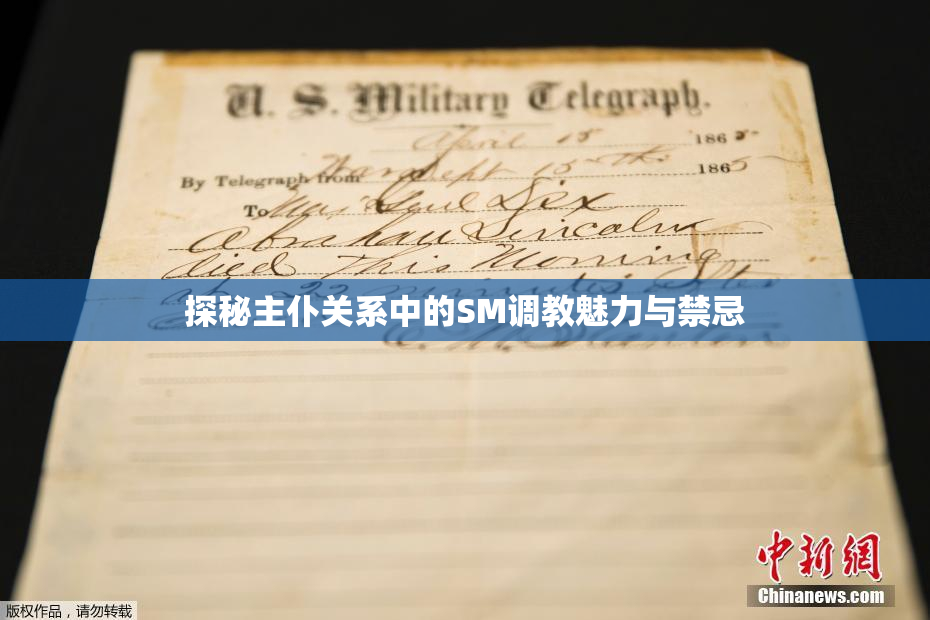 U. S. Military Telegraph.
April 15 1865-
By Telegraph from War Dept 15th 1865
To Maj Genl Dix
Abraham Lincoln
died This Morning
at 22 minutes after
探秘主仆关系中的SM调教魅力与禁忌
E. M. Stanton
中新網
Chinanews.com
版权作品，请勿转载